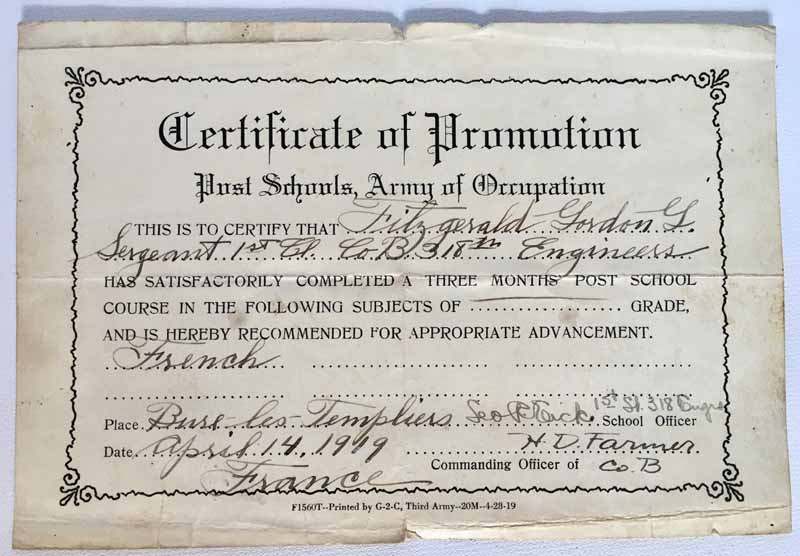 Certificate of Promotion
Post Schools, Army of Occupation
THIS IS TO CERTIFY THAT Fitzgerald Gordon G.
Sergeant 1st Cl. Co B. 318th Engineers
HAS SATISFACTORILY COMPLETED A THREE MONTHS POST SCHOOL
COURSE IN THE FOLLOWING SUBJECTS OF .................... GRADE,
AND IS HEREBY RECOMMENDED FOR APPROPRIATE ADVANCEMENT.
French
Place Bure-les-Templiers Geo 1st Lt. 318 Engrs School Officer
Date April 14, 1919 H. D. Farmer
Commanding Officer of Co. B
France
F1560T--Printed by G-2-C, Third Army--20M--4-28-19